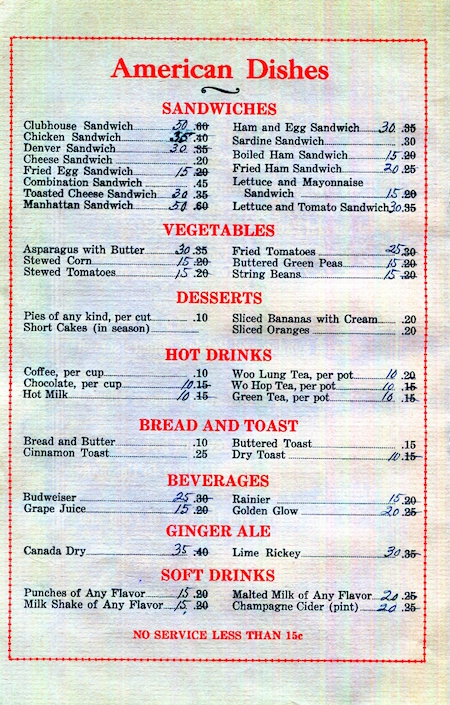 American Dishes
SANDWICHES
Clubhouse Sandwich 50 .60
Chicken Sandwich 35 .40
Denver Sandwich 30 .35
Cheese Sandwich .20
Fried Egg Sandwich 15 .20
Combination Sandwich .45
Toasted Cheese Sandwich 30 .35
Manhattan Sandwich 50 .60
Ham and Egg Sandwich 30 .35
Sardine Sandwich .30
Boiled Ham Sandwich 15 .20
Fried Ham Sandwich 20 .25
Lettuce and Mayonnaise
Sandwich 15 .20
Lettuce and Tomato Sandwich 30 .35
VEGETABLES
Asparagus with Butter 30 .35
Stewed Corn 15 .20
Stewed Tomatoes 15 .20
Fried Tomatoes 25 .30
Buttered Green Peas 15 .20
String Beans 15 .20
DESSERTS
Pies of any kind, per cut .10
Short Cakes (in season)
Sliced Bananas with Cream .20
Sliced Oranges .20
HOT DRINKS
Coffee, per cup .10
Chocolate, per cup 10 .15
Hot Milk 10 .15
Woo Lung Tea, per pot 10 .20
Wo Hop Tea, per pot 10 .15
Green Tea, per pot 10 .15
BREAD AND TOAST
Bread and Butter .10
Cinnamon Toast .25
Buttered Toast .15
Dry Toast 10 .15
BEVERAGES
Budweiser 25 .30
Grape Juice 15 .20
Rainier 15 .20
Golden Glow 20 .25
GINGER ALE
Canada Dry 35 .40
Lime Rickey 30 .35
SOFT DRINKS
Punches of Any Flavor 15 .20
Milk Shake of Any Flavor 15 .20
Malted Milk of Any Flavor 20 .25
Champagne Cider (pint) 20 .25
NO SERVICE LESS THAN 15c